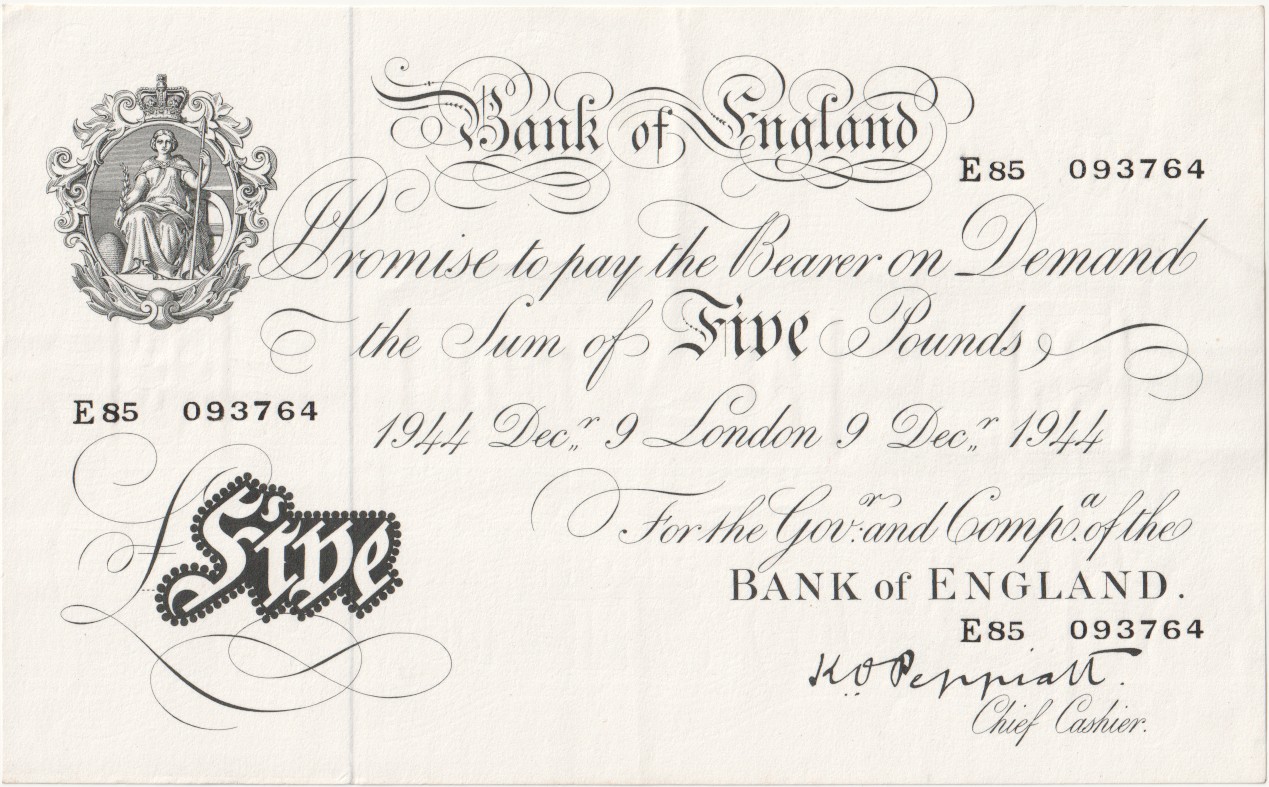 Bank of England
E85 093764
I Promise to pay the Bearer on Demand
the Sum of Five Pounds
E85 093764
1944 Dec.r 9 London 9 Dec.r 1944
£Five
For the Gov.r and Comp.a of the
BANK of ENGLAND.
E85 093764
K.O. Peppiatt.
Chief Cashier.